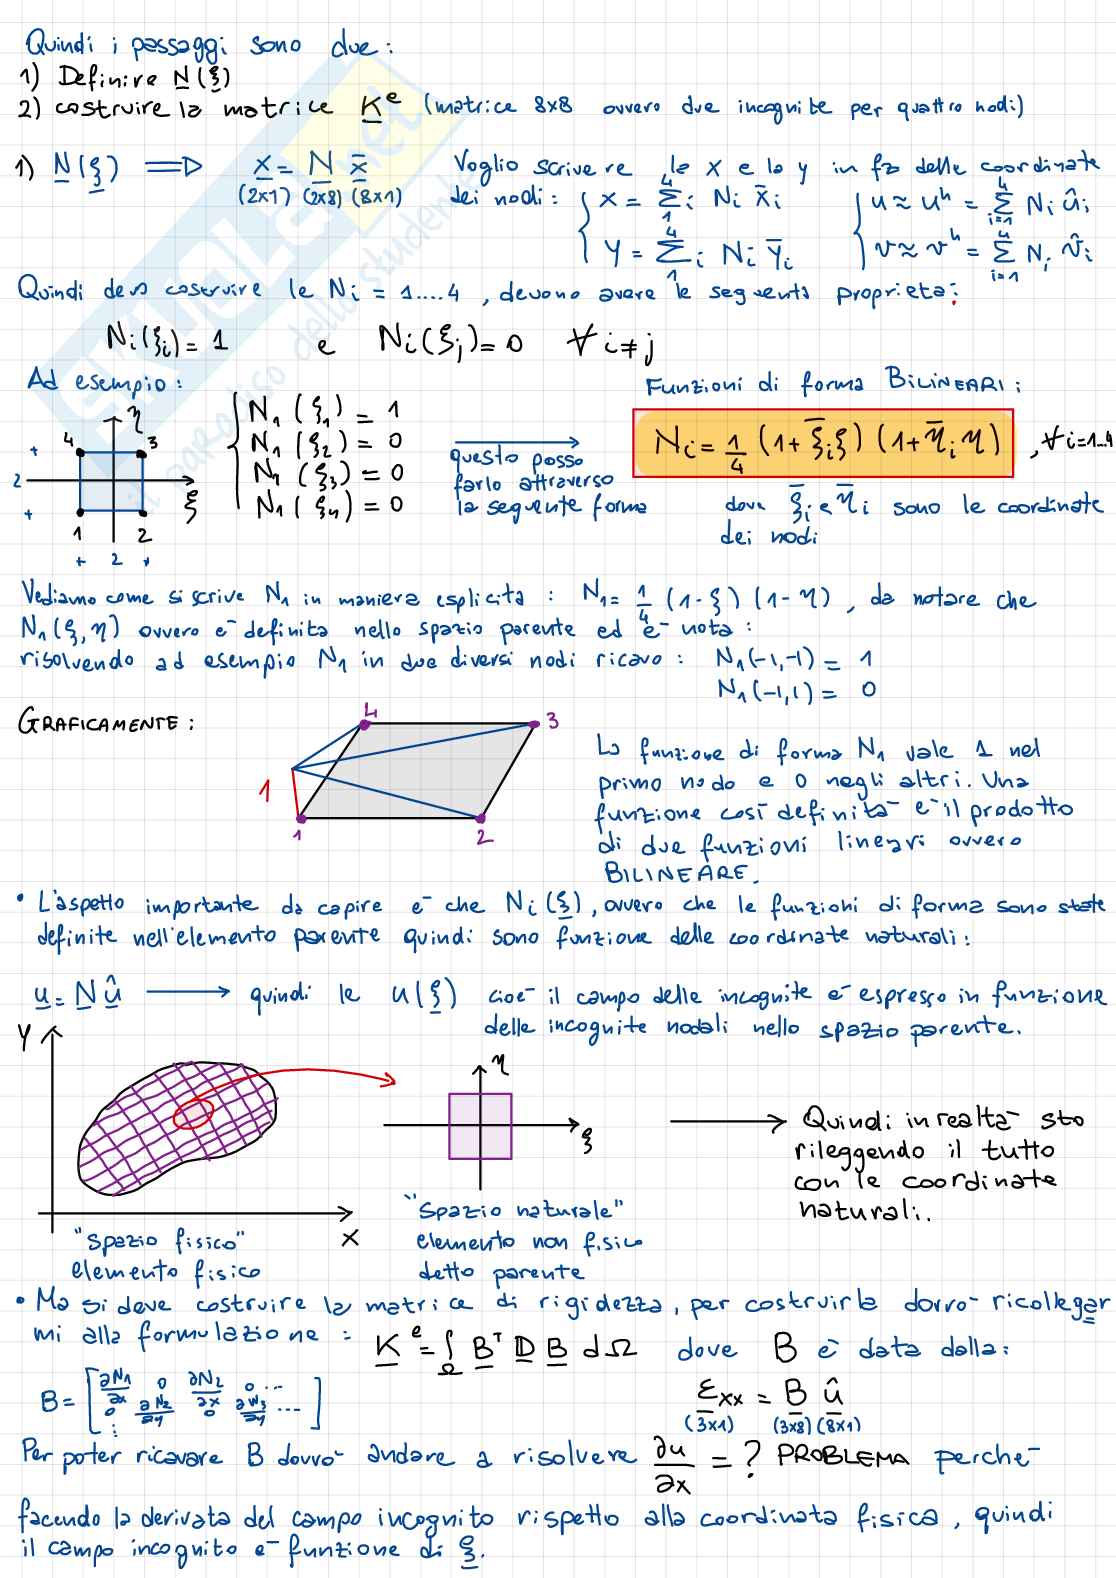 Quindi i passaggi sono due:
1) Definire N(ξ)
2) costruire la matrice K^e (matrice 8x8 ovvero due incognite per quattro nodi)
1) N(ξ) ⟹ x = N x̄ Voglio scrivere le x e la y in fz delle coordinate
(2x1) (2x8) (8x1) dei nodi: { x = Σ_i^4 N_i x̄_i { u ≈ u^h = Σ_{i=1}^4 N_i û_i
y = Σ_i^4 N_i ȳ_i v ≈ v^h = Σ_{i=1}^4 N_i v̂_i
Quindi devo costruire le N_i = 1....4, devono avere le seguenti proprietà:
N_i(ξ_i) = 1 e N_i(ξ_j) = 0 ∀ i≠j
Ad esempio: Funzioni di forma BILINEARI:
η 4 3 + 2 + ξ 1 2 + 2 +
{ N_1(ξ_1) = 1
N_1(ξ_2) = 0
N_1(ξ_3) = 0
N_1(ξ_4) = 0
questo posso
farlo attraverso
la seguente forma
N_i = 1/4 (1+ξ̄_iξ)(1+η̄_iη) , ∀i=1...4
dove ξ̄_i e η̄_i sono le coordinate
dei nodi
Vediamo come si scrive N_1 in maniera esplicita: N_1 = 1/4 (1-ξ)(1-η), da notare che
N_1(ξ,η) ovvero è definita nello spazio parente ed è nota:
risolvendo ad esempio N_1 in due diversi nodi ricavo: N_1(-1,-1) = 1
N_1(-1,1) = 0
GRAFICAMENTE:
4 3
1
1 2
La funzione di forma N_1 vale 1 nel
primo nodo e 0 negli altri. Una
funzione così definita è il prodotto
di due funzioni lineari ovvero
BILINEARE.
• L'aspetto importante da capire è che N_i(ξ), ovvero che le funzioni di forma sono state
definite nell'elemento parente quindi sono funzione delle coordinate naturali:
u = N û ⟶ quindi le u(ξ) cioè il campo delle incognite è espresso in funzione
delle incognite nodali nello spazio parente.
y η
ξ
x
⟶ Quindi in realtà sto
rileggendo il tutto
con le coordinate
naturali.
"Spazio fisico"
elemento fisico
"Spazio naturale"
elemento non fisico
detto parente
• Ma si deve costruire la matrice di rigidezza, per costruirla dovrò ricollegar
mi alla formulazione: K^e = ∫_Ω B^T D B dΩ dove B è data dalla:
B = [ ∂N_1/∂x 0 ∂N_2/∂x 0 ...
0 ∂N_2/∂y 0 ∂N_3/∂y ...
⋮ ]
ε_xx = B û
(3x1) (3x8) (8x1)
Per poter ricavare B dovrò andare a risolvere ∂u/∂x = ? PROBLEMA perchè
facendo la derivata del campo incognito rispetto alla coordinata fisica, quindi
il campo incognito è funzione di ξ.
SKUOLA.net
il paradiso dello studente